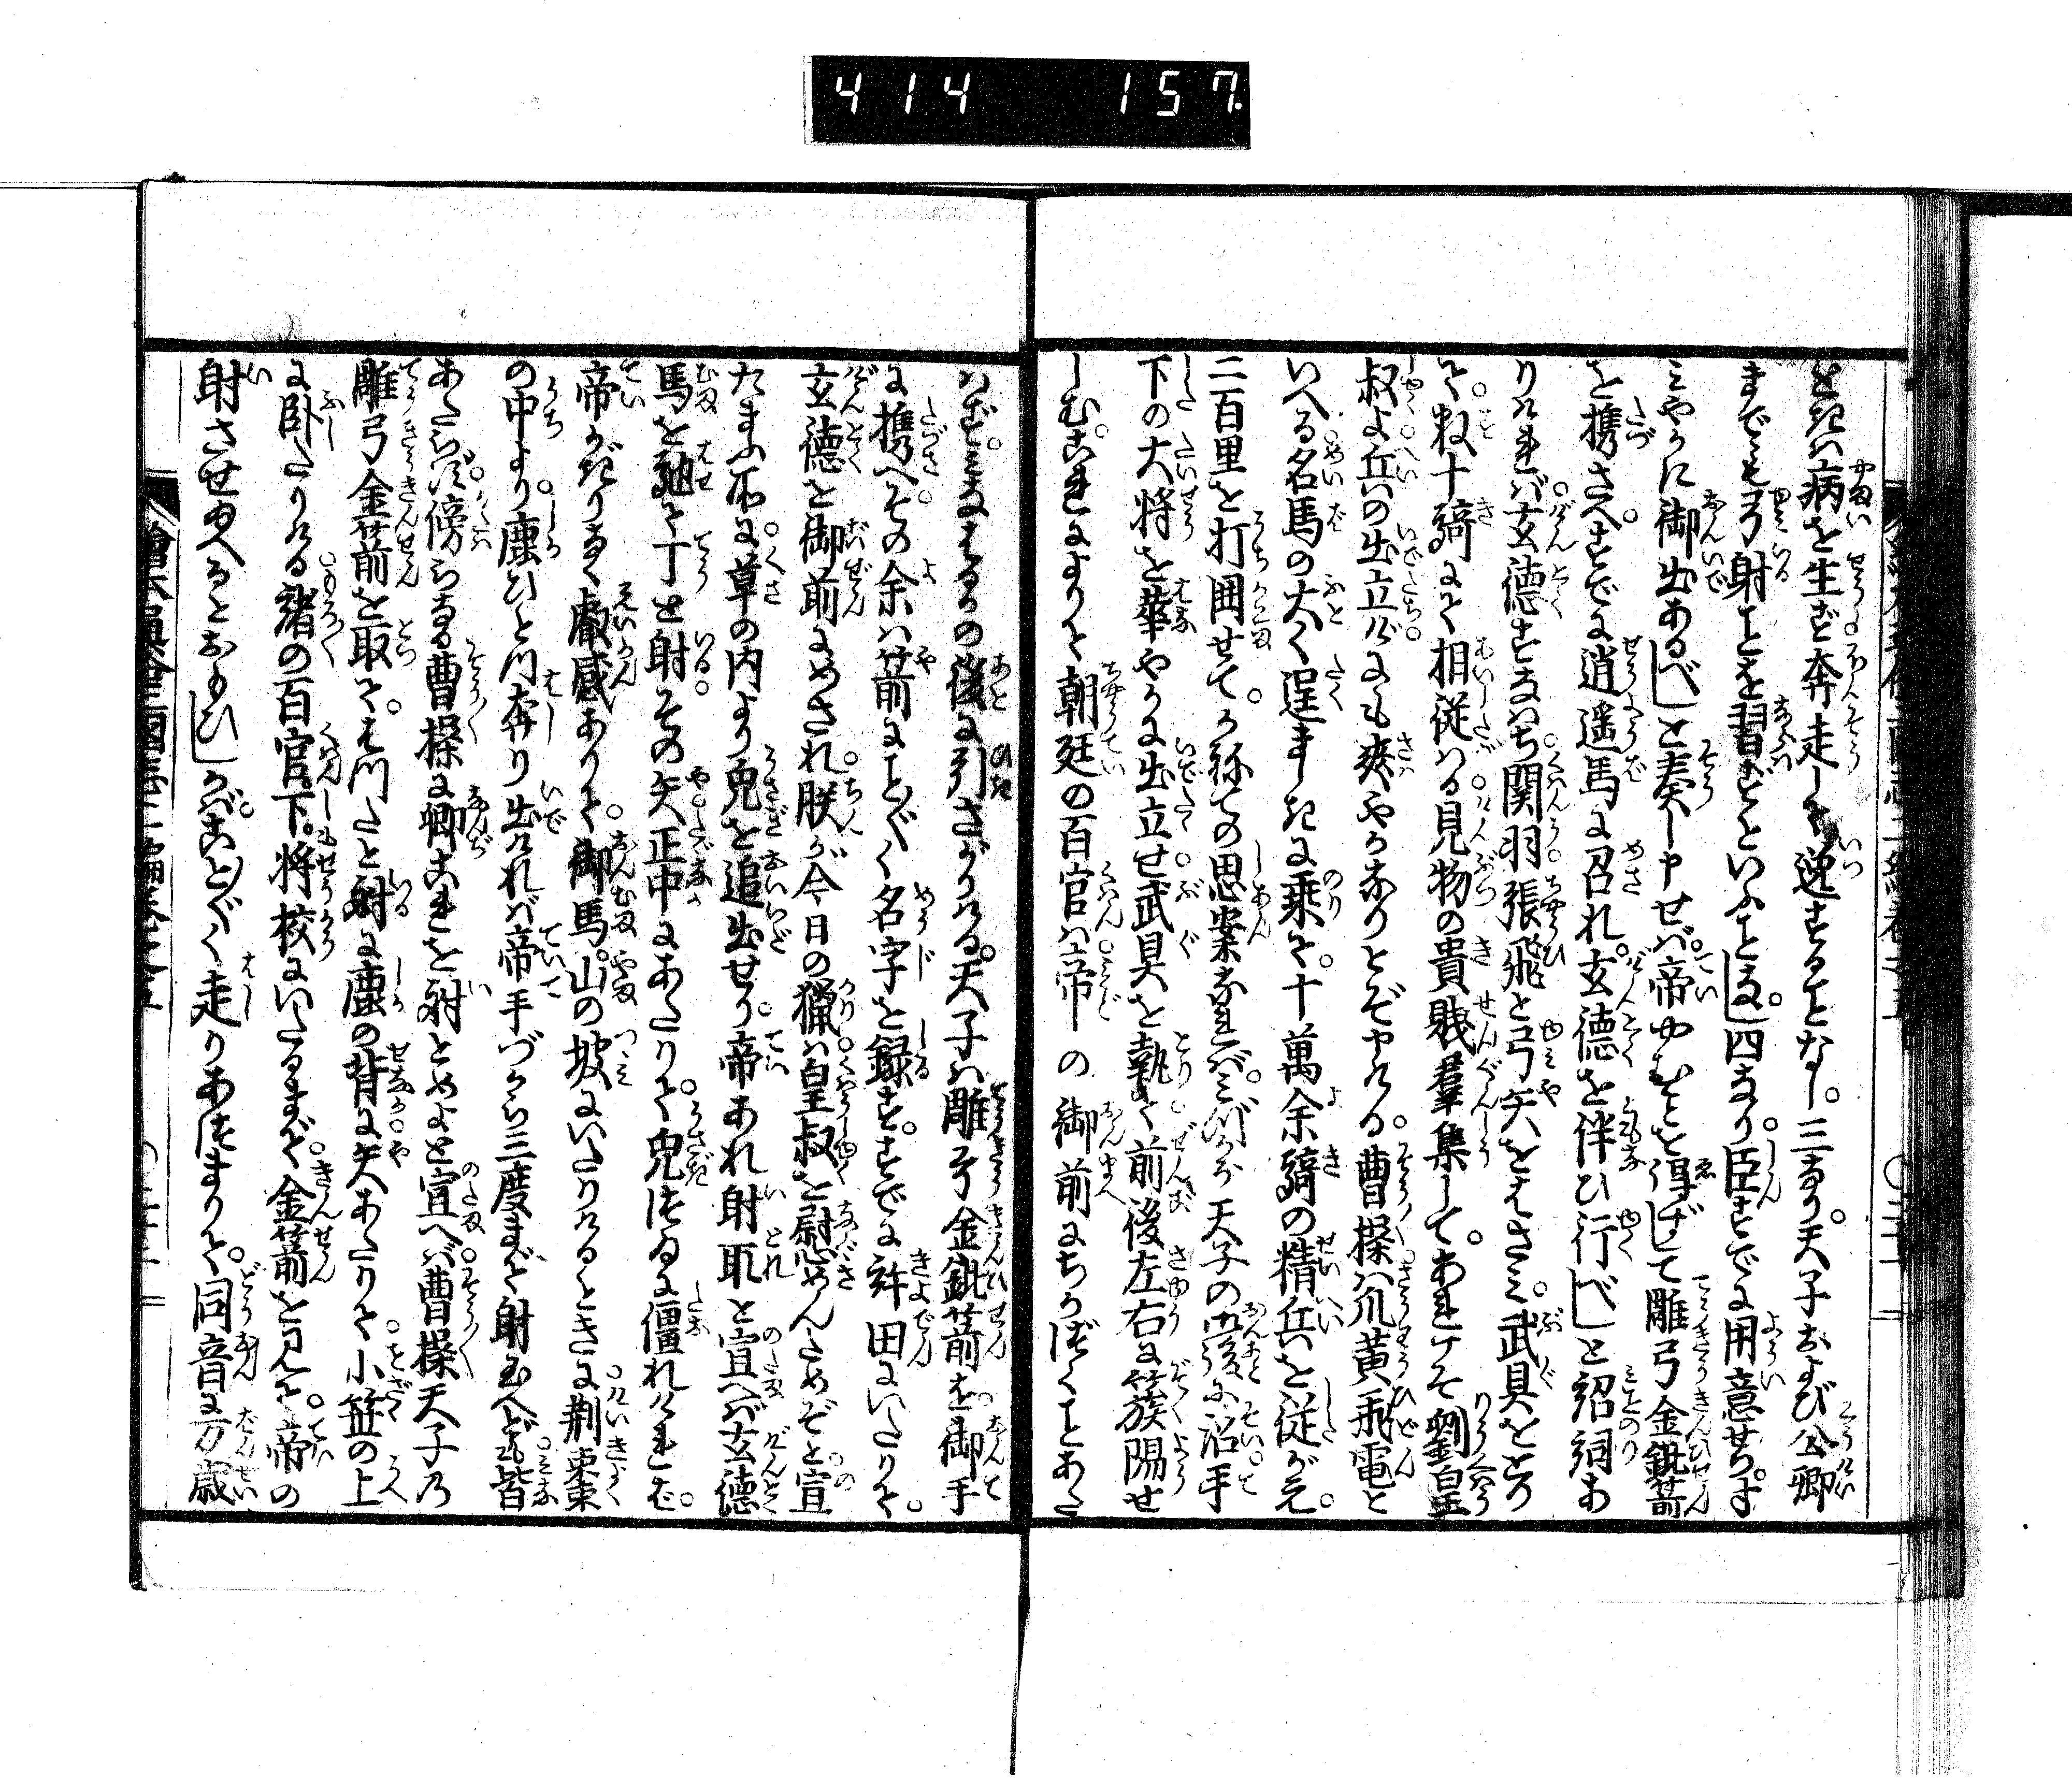 414 157
ときハ病を生じ奔走して逸することなし。三なり。天子および公卿
までも弓射ことを習ずといふことなし。四なり。臣すでに用意せち
みやかに御出あるべしと奏し申せバ。帝やむことを得ずして雕弓金鈚箭
を携さへ。すでに逍遥馬に召れ。玄徳を伴ひ行べしと紹詞あ
りけれバ。玄徳すなハち関羽。張飛と弓矢をはさミ。武具をとつ
て。数十騎にて相従ハる。見物の貴賎羣集して。あれけそ劉皇
叔よ。兵の出立げにも爽やかなりとぞ申ける。曹操ハ爪黄飛電と
いへる名馬の太く逞ましきに乗て。十萬余騎の精兵を従がえ。
二百里を打囲せて。かねての思案なれバ。ミづから天子の御後に沿手
下の大将を華やかに出立せ武具を執て前後左右に簇陽せ
しむ。これによりて朝廷の百官ハ。帝の御前にちかづくことあた
ハず。ミなはるかの後に引さがりける。天子ハ雕弓金鈚箭を御手
に携へ。その余ハ箭にことごとく名字を録す。すでに許田にいたりて。
玄徳を御前にめされ。朕が今日の猟ハ皇叔を慰めんためぞと宣
たまふ所に。草の内より兎を追出せり。帝あれ射取と宣へバ玄徳
馬を馳て丁と射る。その矢正中にあたりて。兎つゐに僵れけれバ。
帝かぎりなく叡感ありて。御馬。山の坡にいたりけるとき。荊棘
の中より。麈ひとつ奔り出けれバ帝手づから三度まで射玉へども皆
あたらず。傍らなる曹操に卿これを射とめよと宣へバ。曹操天子乃
雕弓金箭を取て。はつたと射る麈の背に矢あたりて。小笹の上
に臥たりける。諸の百官下。将校にいたるまで。金箭を見て。帝の
射させ玉へるとおもひしかバ。ことごとく走りあつまりて。同音に万歳